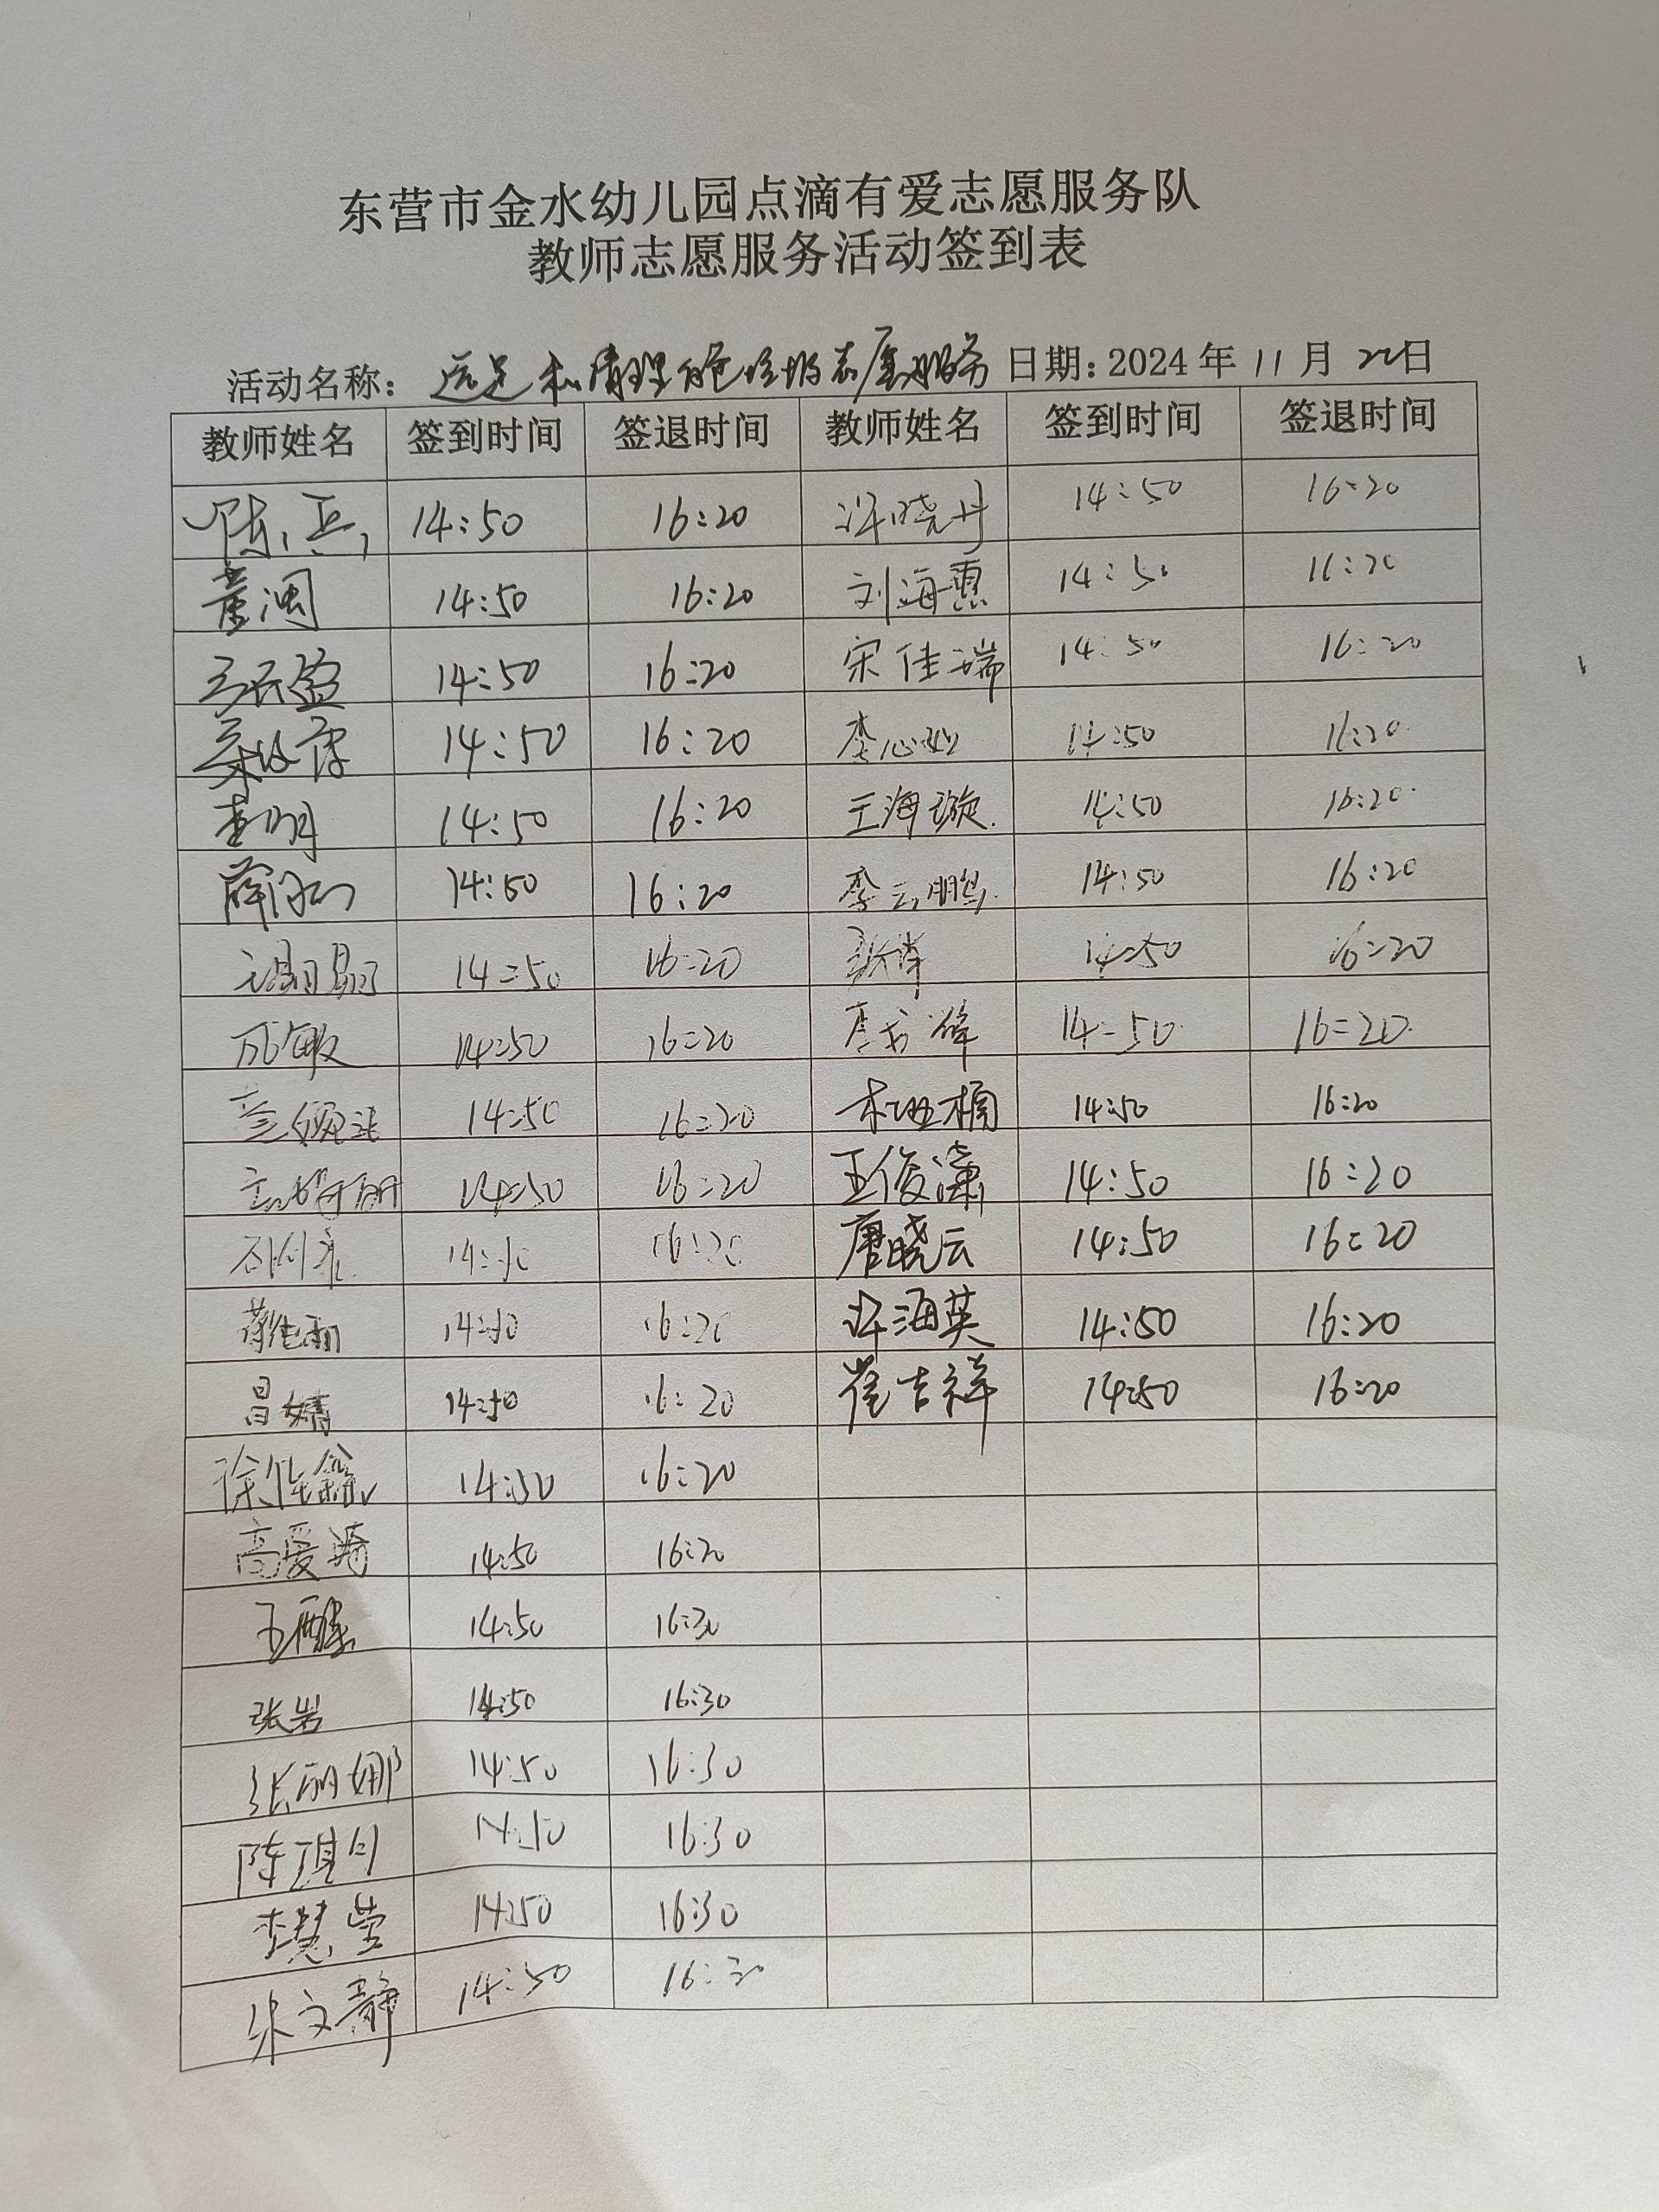 东营市金水幼儿园点滴有爱志愿服务队
教师志愿服务活动签到表
活动名称：远足和清理白色垃圾志愿服务 日期：2024年11月22日
教师姓名 签到时间 签退时间 教师姓名 签到时间 签退时间
陈兵 14:50 16:20 许晓丹 14:50 16:20
14:50 16:20 刘海惠 14:50 16:20
14:50 16:20 宋佳瑞 14:50 16:20
14:50 16:20 李心 14:50 16:20
14:50 16:20 王海璇 14:50 16:20
薛 14:50 16:20 李云鹏 14:50 16:20
14:50 16:20 张 14:50 16:20
成敏 14:50 16:20 14:50 16:20
14:50 16:20 14:50 16:20
14:50 16:20 王俊潇 14:50 16:20
14:50 16:20 唐晓云 14:50 16:20
14:50 16:20 许海英 14:50 16:20
昌婧 14:50 16:20 崔吉祥 14:50 16:20
徐佳 14:50 16:20
高爱 14:50 16:20
王 14:50 16:30
张岩 14:50 16:30
张丽娜 14:50 16:30
陈琪 14:50 16:30
李慧莹 14:50 16:30
朱文静 14:50 16:30